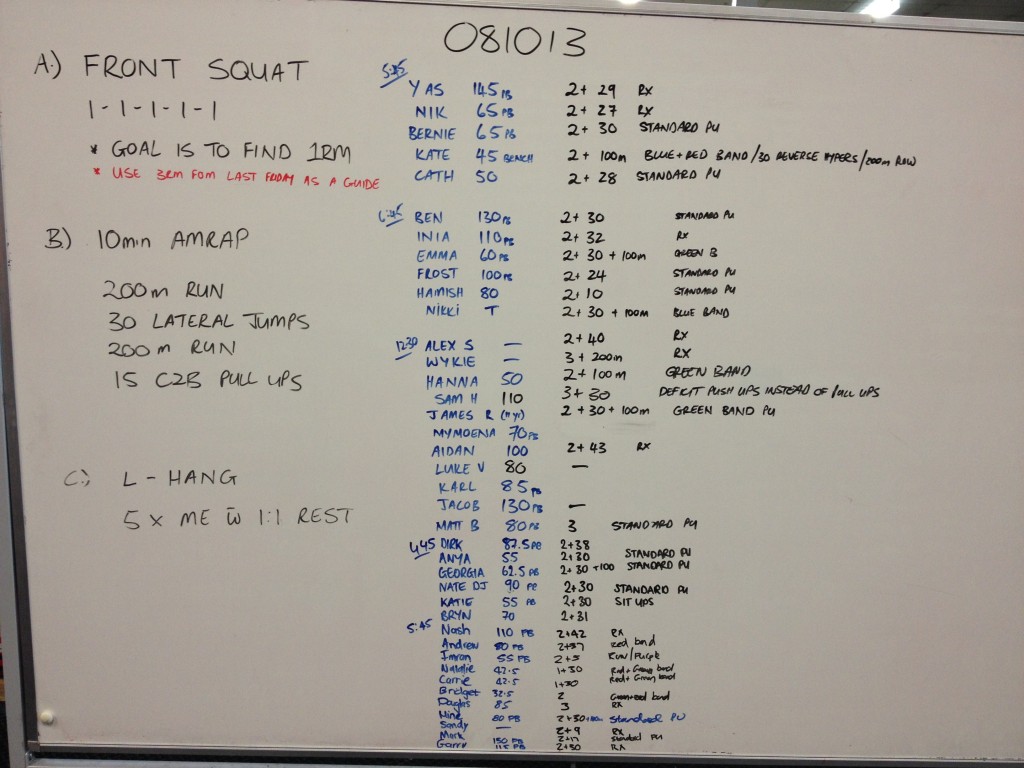 081013
A.) FRONT SQUAT
1-1-1-1-1
* GOAL IS TO FIND 1RM
* USE 3RM FOM LAST FRIDAY AS A GUIDE
B.) 10min AMRAP
200m RUN
30 LATERAL JUMPS
200m RUN
15 C2B PULL UPS
C.) L-HANG
5 x ME w̄ 1:1 REST
5:45
YAS 145 PB 2+29 RX
NIK 65 PB 2+27 RX
BERNIE 65 PB 2+30 STANDARD PU
KATE 45 BENCH 2+100m BLUE+RED BAND/30 REVERSE HYPERS/200m ROW
CATH 50 2+28 STANDARD PU
6:45 BEN 130 PB 2+30 STANDARD PU
INIA 110 PB 2+32 RX
EMMA 60 PB 2+30+100m GREEN B
FROST 100 PB 2+24 STANDARD PU
HAMISH 80 2+10 STANDARD PU
NIKKI T 2+30+100m BLUE BAND
1230 ALEX S — 2+40 RX
WYKIE — 3+200m RX
HANNA 50 2+100m GREEN BAND
SAM H 110 3+30 DEFICIT PUSH UPS INSTEAD OF PULL UPS
JAMES R 2+30+100m GREEN BAND PU
MYMOENA 70 PB
AIDAN 100 2+43 RX
LUKE V 80 —
KARL 85 PB
JACOB 130 PB —
MATT B 80 PB 3 STANDARD PU
4:45 DIRK 87.5 PB 2+38
ANYA 55 2+30 STANDARD PU
GEORGIA 62.5 PB 2+30+100 STANDARD PU
NATE DJ 90 PB 2+30 STANDARD PU
KATIE 55 PB 2+30 SIT UPS
BRYN 70 2+31
5:45 Nash 110 PB 2+42 RX
Andrew 80 PB 2+37 red band
Imran 55 PB 2+5 Run/Purple
Natalie 42.5 1+30 Red+Green band
Carrie 42.5 1+30 Red+Green band
Bridget 32.5 2 Green+red band
Douglas 85 3 RX
Hine 80 PB 2+30+100m Standard PU
Sandy —
Mark 150 PB 2+17 Standard PU
Garry 115 PB 2+30 RX